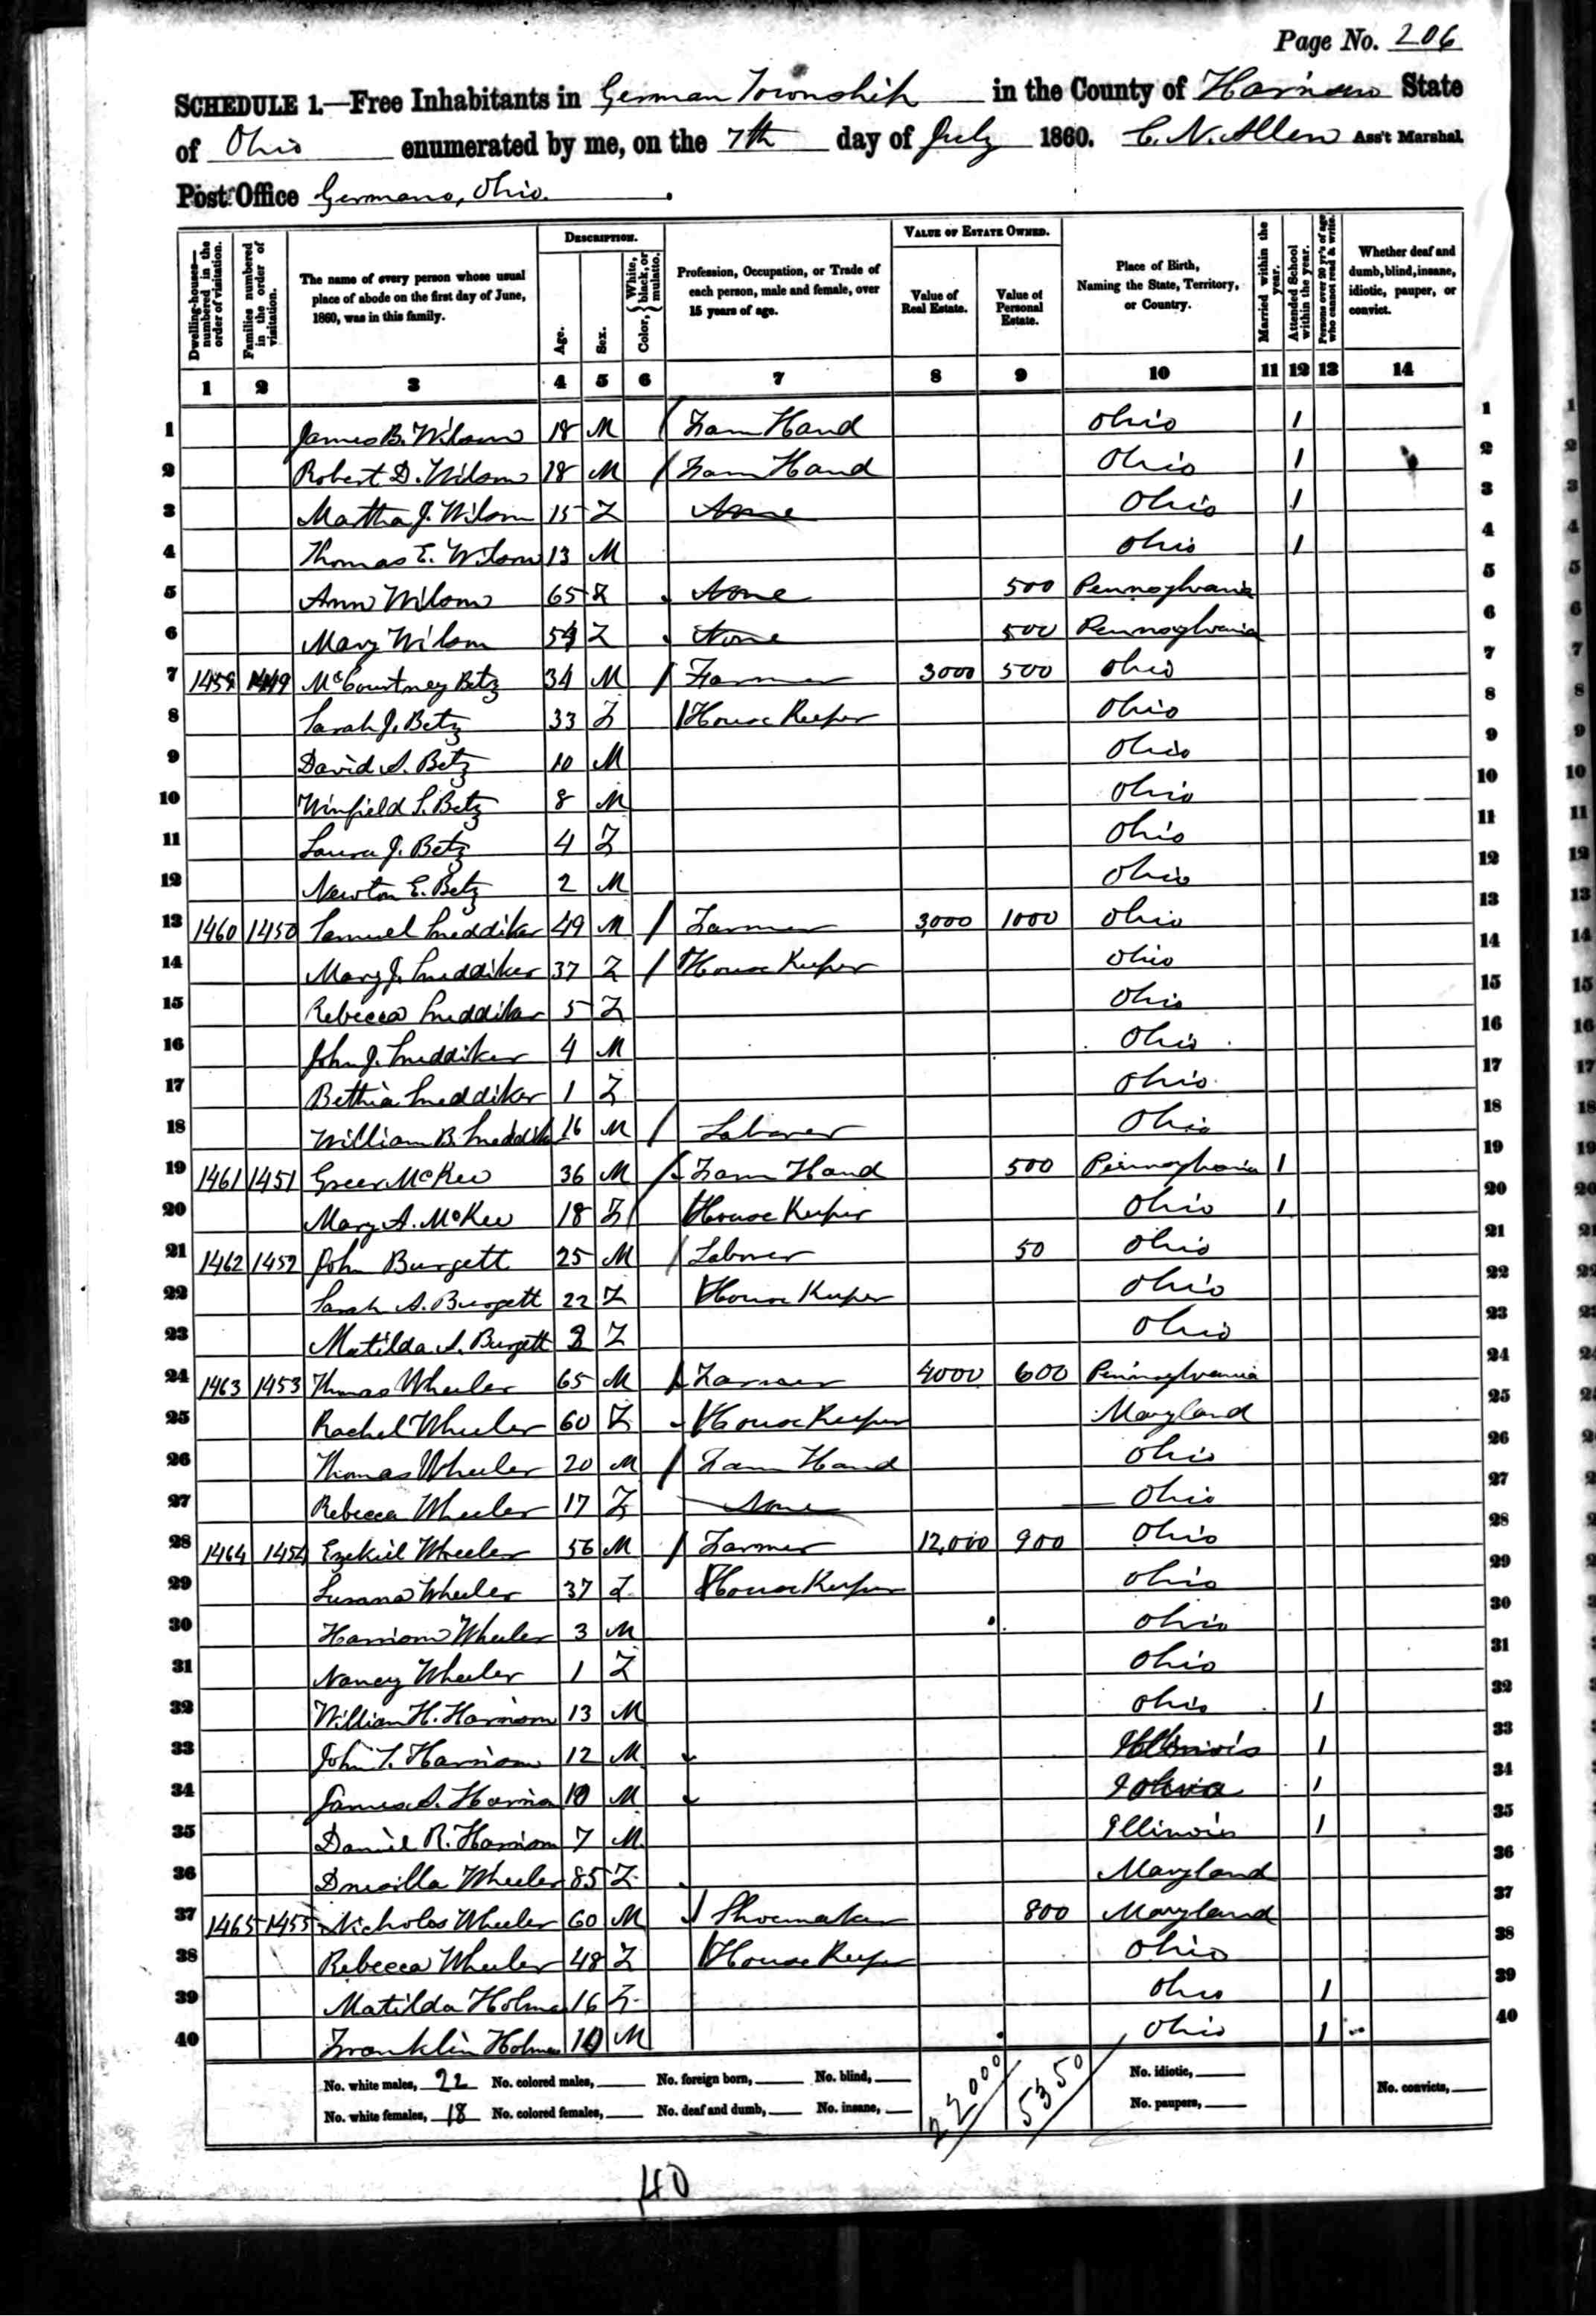 Page No. 206
SCHEDULE 1.—Free Inhabitants in German Township in the County of Harrison State
of Ohio enumerated by me, on the 7th day of July 1860. C. N. Allen Ass't Marshal.
Post Office Germano, Ohio.
Dwelling-houses—numbered in the order of visitation. Families numbered in the order of visitation. The name of every person whose usual place of abode on the first day of June, 1860, was in this family. DESCRIPTION. Age. Sex. Color, { White, black, or mulatto. Profession, Occupation, or Trade of each person, male and female, over 15 years of age. VALUE OF ESTATE OWNED. Value of Real Estate. Value of Personal Estate. Place of Birth, Naming the State, Territory, or Country. Married within the year. Attended School within the year. Persons over 20 yr's of age who cannot read & write. Whether deaf and dumb, blind, insane, idiotic, pauper, or convict.
1 2 3 4 5 6 7 8 9 10 11 12 13 14
1 James B. Wilson 18 M / Farm Hand Ohio 1 1
2 Robert D. Wilson 18 M / Farm Hand Ohio 1 2
3 Martha J. Wilson 15 F None Ohio 1 3
4 Thomas E. Wilson 13 M Ohio 1 4
5 Ann Wilson 65 F None 500 Pennsylvania 5
6 Mary Wilson F None 500 Pennsylvania 6
7 1459 1449 McCourtney Betz 34 M / Farmer 3000 500 Ohio 7
8 Sarah J. Betz 33 F House Keeper Ohio 8
9 David A. Betz 10 M Ohio 9
10 Winfield S. Betz 8 M Ohio 10
11 Laura J. Betz 4 F Ohio 11
12 Newton E. Betz 2 M Ohio 12
13 1460 1450 Samuel Sneddiker 49 M / Farmer 3,000 1000 Ohio 13
14 Mary J. Sneddiker 37 F / House Keeper Ohio 14
15 Rebecca Sneddiker 5 F Ohio 15
16 John J. Sneddiker 4 M Ohio 16
17 Bethia Sneddiker 1 F Ohio 17
18 William B. Sneddik 16 M / Laborer Ohio 18
19 1461 1451 Greer McKee 36 M / Farm Hand 500 Pennsylvania 1 19
20 Mary A. McKee 18 F / House Keeper Ohio 1 20
21 1462 1452 John Burgett 25 M / Laborer 50 Ohio 21
22 Sarah A. Burgett 22 F House Keeper Ohio 22
23 Matilda A. Burgett F Ohio 23
24 1463 1453 Thomas Wheeler 65 M / Farmer 4000 600 Pennsylvania 24
25 Rachel Wheeler 60 F House Keeper Maryland 25
26 Thomas Wheeler 20 M / Farm Hand Ohio 26
27 Rebecca Wheeler 17 F None Ohio 27
28 1464 1454 Ezekiel Wheeler 56 M / Farmer 12,000 900 Ohio 28
29 Susana Wheeler 37 F House Keeper Ohio 29
30 Harrison Wheeler 3 M Ohio 30
31 Nancy Wheeler 1 F Ohio 31
32 William H. Harrison 13 M Ohio 1 32
33 John T. Harrison 12 M Illinois 1 33
34 James S. Harrison 10 M 1 34
35 Daniel R. Harrison 7 M Illinois 1 35
36 Drusilla Wheeler 85 F Maryland 36
37 1465 1455 Nicholas Wheeler 60 M Shoemaker 800 Maryland 37
38 Rebecca Wheeler 48 F House Keeper Ohio 38
39 Matilda Holmes 16 F Ohio 1 39
40 Franklin Holmes 10 M Ohio 1 40
No. white males, 22 No. colored males, No. foreign born, No. blind, 22000 5350 No. idiotic,
No. white females, 18 No. colored females, No. deaf and dumb, No. insane, No. paupers, No. convicts,
40